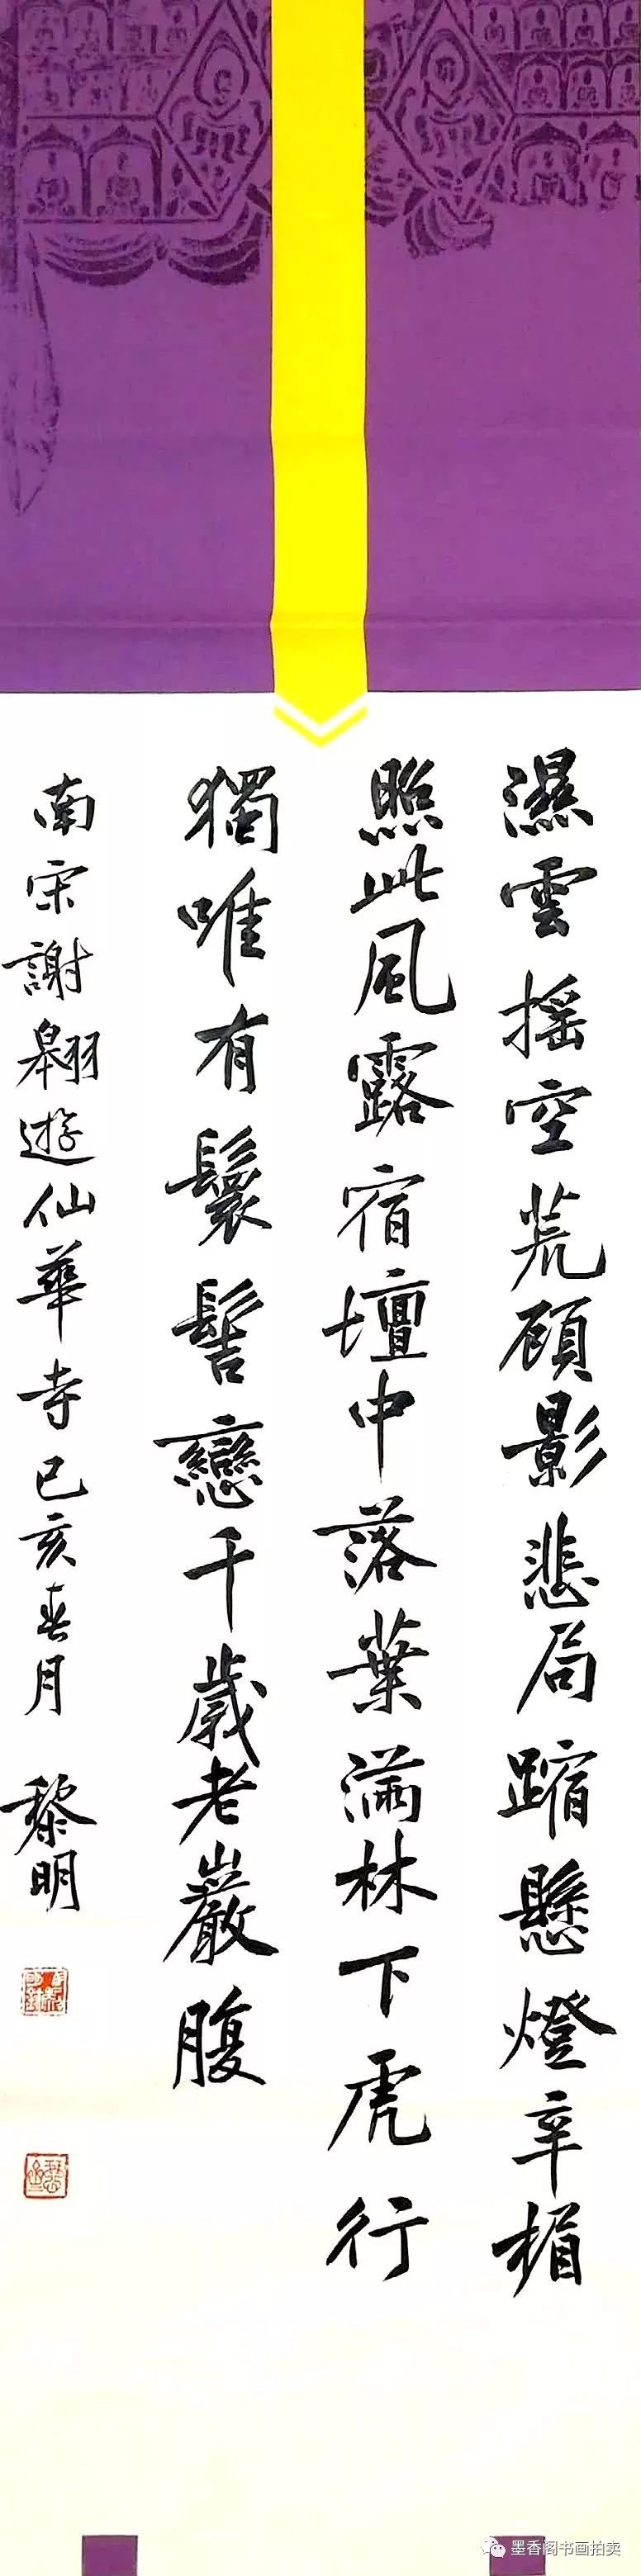 濕雲摇空荒顧影悲局蹜懸燈辛楣
照此風露宿壇中落葉滿林下虎行
獨唯有鬟髻戀千歲老巖腹
南宋謝翱遊仙華寺己亥春月 黎明
墨香阁书画拍卖